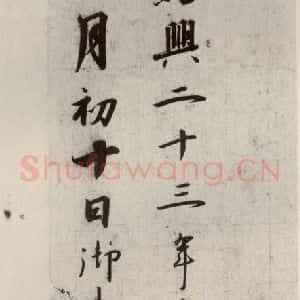 興二十三年
月初十日御
Shufawang.CN